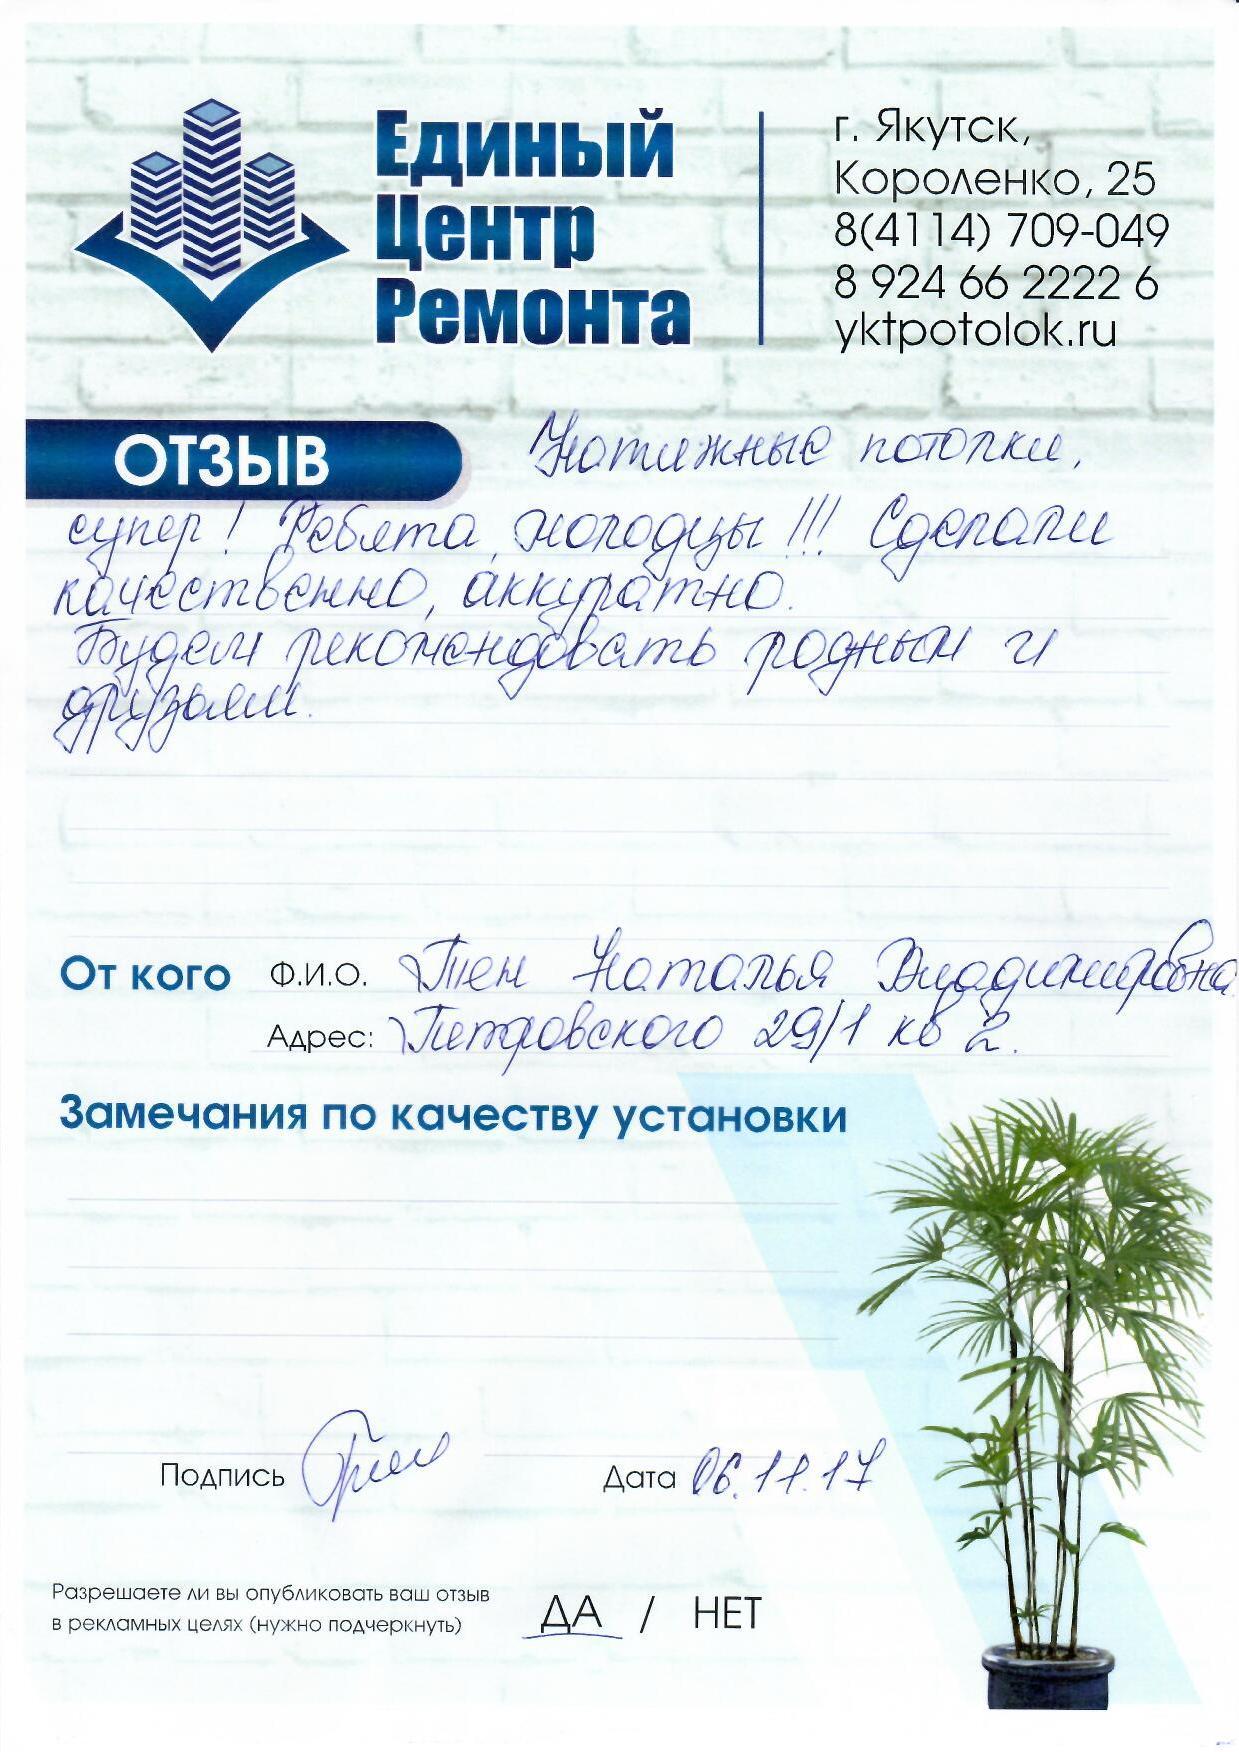 Единый
Центр
Ремонта
г. Якутск,
Короленко, 25
8(4114) 709-049
8 924 66 2222 6
yktpotolok.ru
ОТЗЫВ
Натяжные потолки,
супер! Ребята, молодцы!!! Сделали
качественно, аккуратно.
Будем рекомендовать родным и
друзьям.
От кого Ф.И.О. Тен Наталья Владимировна
Адрес: Петровского 29/1 кв 2.
Замечания по качеству установки
Подпись
Дата 06.11.17
Разрешаете ли вы опубликовать ваш отзыв
в рекламных целях (нужно подчеркнуть)
ДА / НЕТ